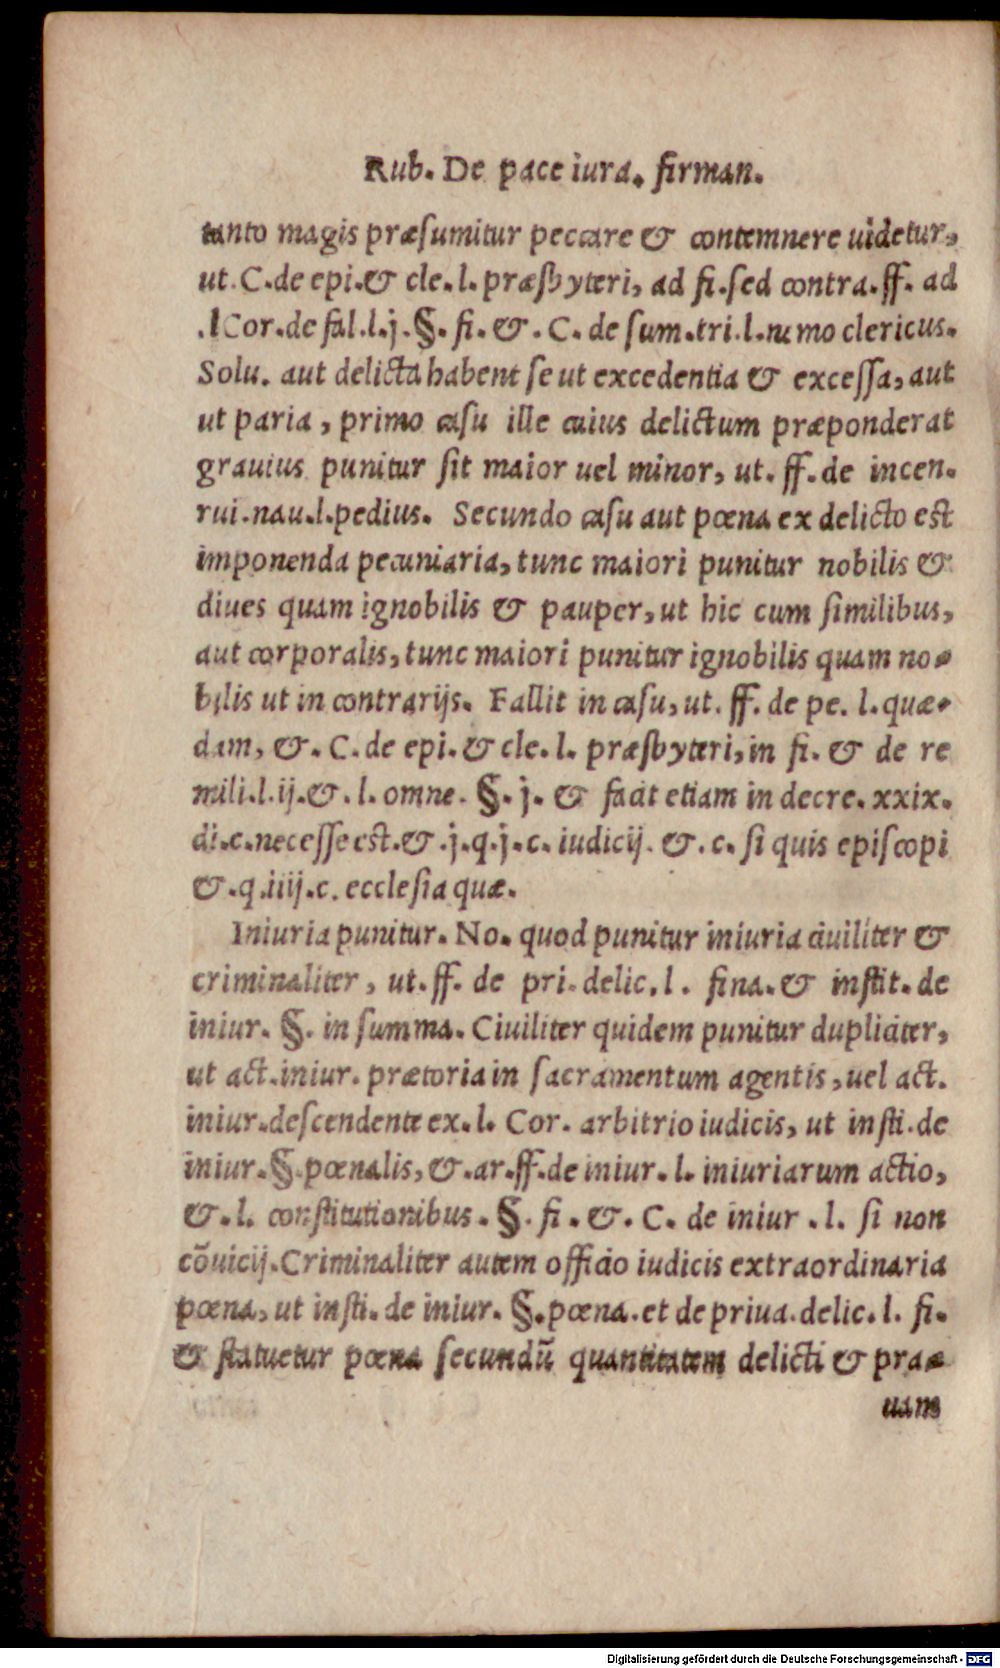 Rub. De pace iura. firman.
tanto magis præsumitur peccare & contemnere uidetur,
ut. C. de epi. & cle. l. præsbyteri, ad fi. sed contra. ff. ad
.l Cor. de fal. l. j. §. fi. &. C. de sum. tri. l. nemo clericus.
Solu. aut delicta habent se ut excedentia & excessa, aut
ut paria, primo casu ille cuius delictum præponderat
grauius punitur sit maior uel minor, ut. ff. de incen.
rui. nau. l. pedius. Secundo casu aut pœna ex delicto est
imponenda pecuniaria, tunc maiori punitur nobilis &
diues quam ignobilis & pauper, ut hic cum similibus,
aut corporalis, tunc maiori punitur ignobilis quam no-
bilis ut in contrarijs. Fallit in casu, ut. ff. de pe. l. quæ-
dam, &. C. de epi. & cle. l. præsbyteri, in fi. & de re
mili. l. ij. &. l. omne. §. j. & facit etiam in decre. xxix.
di. c. necesse est. &. j. q. j. c. iudicij. &. c. si quis episcopi
&. q. iiij. c. ecclesia quæ.
Iniuria punitur. No. quod punitur iniuria ciuiliter &
criminaliter, ut. ff. de pri. delic. l. fina. & instit. de
iniur. §. in summa. Ciuiliter quidem punitur dupliciter,
ut act. iniur. prætoria in sacramentum agentis, uel act.
iniur. descendente ex. l. Cor. arbitrio iudicis, ut insti. de
iniur. §. pœnalis, &. ar. ff. de iniur. l. iniuriarum actio,
&. l. constitutionibus. §. fi. &. C. de iniur. l. si non
cõuicij. Criminaliter autem officio iudicis extraordinaria
pœna, ut insti. de iniur. §. pœna. et de priua. delic. l. fi.
& statuetur pœna secundũ quantitatem delicti & pra-
uam
Digitalisierung gefördert durch die Deutsche Forschungsgemeinschaft - DFG